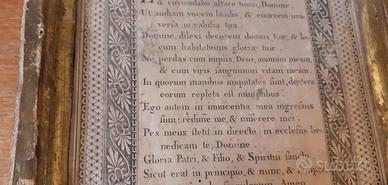 & circumdabo altare tuum, Domine.
Ut audiam vocem laudis, & enarrem univer-
sa mirabilia tua.
Domine, dilexi decorem domus tuæ, & lo-
cum habitationis gloriæ tuæ.
Ne perdas cum impiis, Deus, animam meam,
& cum viris sanguinum vitam meam.
In quorum manibus iniquitates sunt, dextera
eorum repleta est muneribus.
Ego autem in innocentia mea ingressus
sum: redime me, & miserere mei.
Pes meus stetit in directo, in ecclesiis be-
nedicam te, Domine.
Gloria Patri, & Filio, & Spiritui
Sicut erat in principio, & nunc, &
sæculorum. Amen
subito